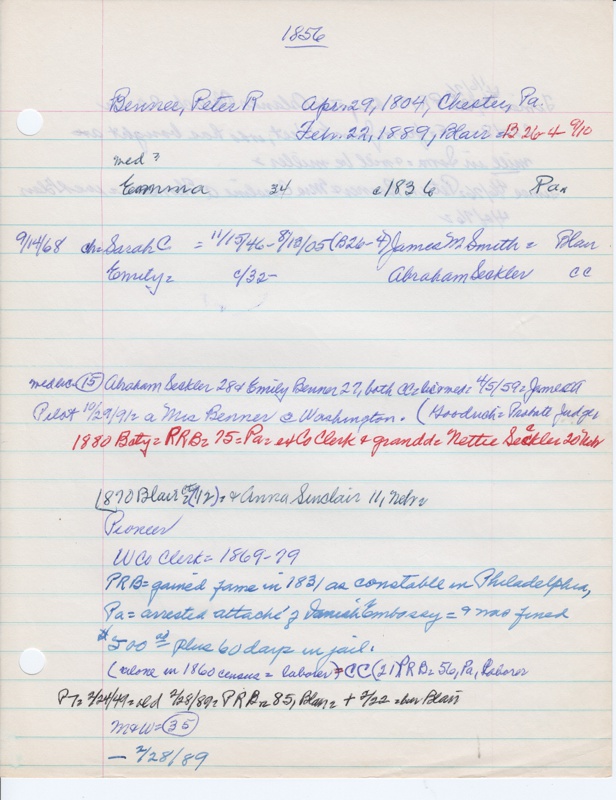 1856
Benner, Peter R Apr. 29, 1804, Chester, Pa.
Feb. 22, 1889, Blair = B 26-4 9/10
med ?
Emma 34 c1836 Pa.
9/14/68 ch = Sarah C = 11/15/46 - 8/10/05 (B26-4) James M Smith = Blair
Emily = c/32- Abraham Seckler CC
(15) Abraham Seckler 28 & Emily Benner 27, both CC = = 4/5/59 =
Pilot 10/29/91 = a Mrs Benner @ Washington. ( = Probate Judge
1880 Boty = PRB = 75 = Pa = ex Co Clerk & grandd = Nettie Seckler 20 Nebr
1870 Blair (12) = & Anna Sinclair 11, Nebr
Pioneer
W Co Clerk = 1869-79
PRB = gained fame in 1831 as constable in Philadelphia,
Pa = arrested attaché of Danish Embassy = & was fined
$500 00 plus 60 days in jail.
(alone in 1860 census = laborer) = CC (21) PRB = 56, Pa, laborer
P7 = 2/24/49 = old 2/28/89 = PRB = 85, Blair = + 2/22 = Blair
M&W = (35)
— 2/28/89